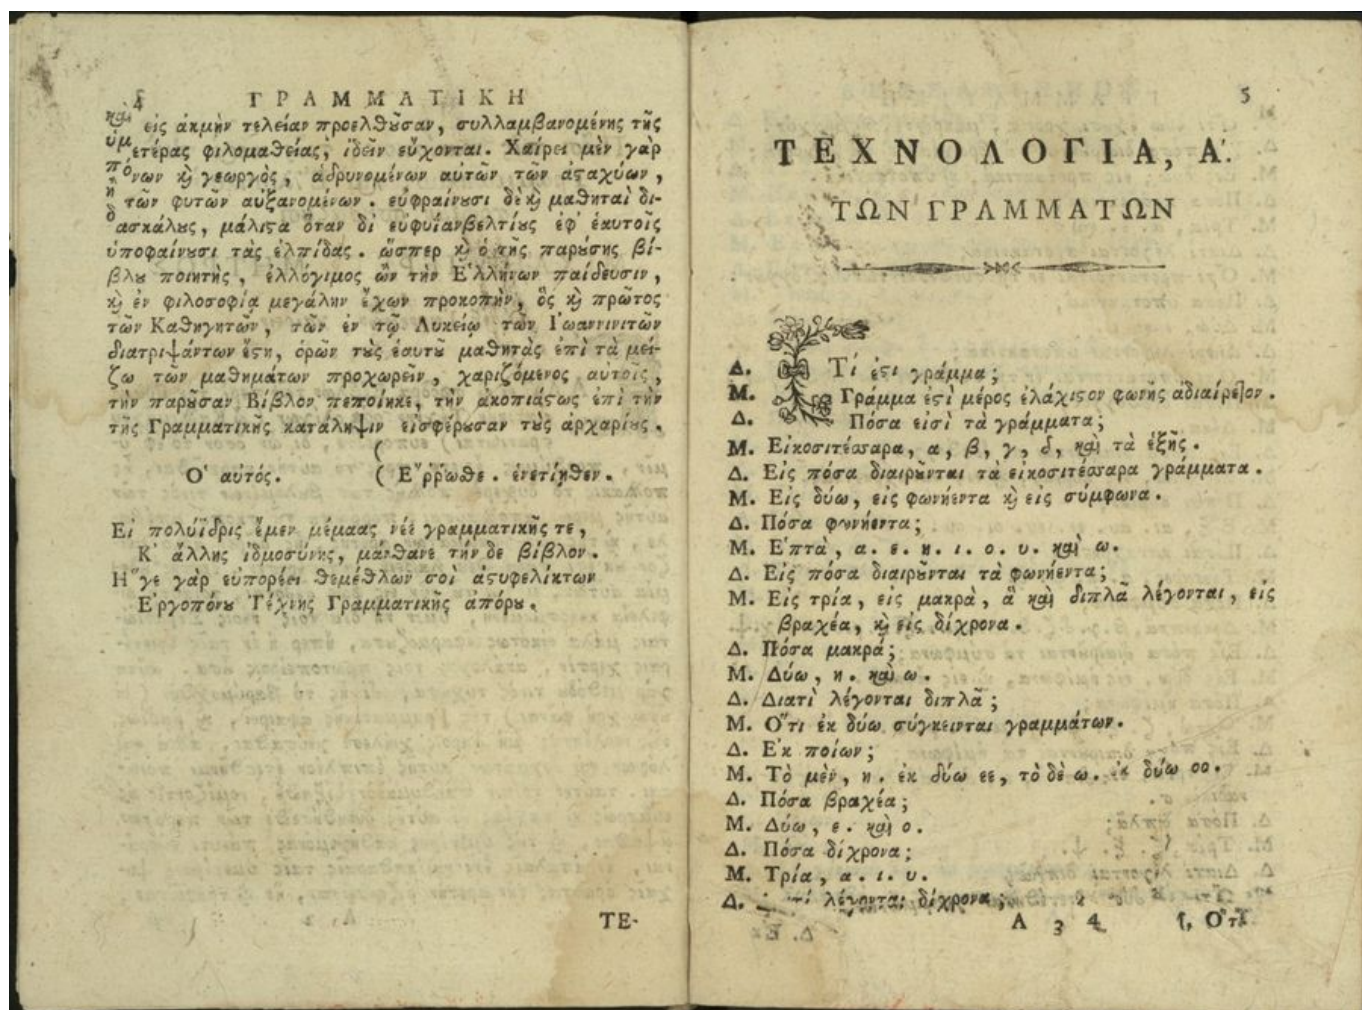 4
ΓΡΑΜΜΑΤΙΚΗ
καὶ εἰς ἀκμὴν τελείαν προελθοῦσαν, συλλαμβανομένης τῆς
ὑμετέρας φιλομαθείας, ἰδεῖν εὔχονται. Χαίρει μὲν γὰρ
πόνων καὶ γεωργὸς, ἁδρυνομένων αυτῶν τῶν ἀσταχύων,
ἢ τῶν φυτῶν αὐξανομένων. εὐφραίνουσι δὲ καὶ μαθηταὶ δι-
δασκάλους, μάλιστα ὅταν δι' εὐφυΐαν βελτίους ἐφ' ἑαυτοῖς
ὑποφαίνουσι τὰς ἐλπίδας. ὥσπερ καὶ ὁ τῆς παρούσης βί-
βλου ποιητής, ἐλλόγιμος ὢν τὴν Ἑλλήνων παίδευσιν,
καὶ ἐν φιλοσοφίᾳ μεγάλην ἔχων προκοπὴν, ὃς καὶ πρῶτος
τῶν Καθηγητῶν, τῶν ἐν τῷ Λυκείῳ τῶν Ἰωαννινιτῶν
διατριψάντων ἔστη, ὁρῶν τοὺς ἑαυτοῦ μαθητὰς ἐπὶ τὰ μεί-
ζω τῶν μαθημάτων προχωρεῖν, χαριζόμενος αὐτοῖς,
τὴν παροῦσαν Βίβλον πεποίηκε, τὴν ἀκοπιάστως ἐπὶ τὴν
τῆς Γραμματικῆς κατάληψιν εἰσφέρουσαν τοὺς ἀρχαρίους.
Ὁ αὐτός. ( Ἔῤῥωσθε. ἐνετίηθεν.
Εἰ πολύϊδρις ἔμεν μέμαας νέε γραμματικῆς τε,
Κ' ἄλλης ἰδμοσύνης, μάνθανε τήν δε βίβλον.
Ἥ γε γὰρ εὐπορέει θεμέθλων σοὶ ἀστυφελίκτων
Ἐργοπόνου Τέχνης Γραμματικῆς ἀπόρου.
ΤΕ-
5
ΤΕΧΝΟΛΟΓΙΑ, Α΄.
ΤΩΝ ΓΡΑΜΜΑΤΩΝ
Δ. Τί ἐστι γράμμα;
Μ. Γράμμα ἐστὶ μέρος ἐλάχιστον φωνῆς ἀδιαίρετον.
Δ. Πόσα εἰσὶ τὰ γράμματα;
Μ. Εἰκοσιτέσσαρα, α, β, γ, δ, καὶ τὰ ἑξῆς.
Δ. Εἰς πόσα διαιροῦνται τὰ εἰκοσιτέσσαρα γράμματα.
Μ. Εἰς δύω, εἰς φωνήεντα καὶ εἰς σύμφωνα.
Δ. Πόσα φωνήεντα;
Μ. Ἑπτὰ, α. ε. η. ι. ο. υ. καὶ ω.
Δ. Εἰς πόσα διαιροῦνται τὰ φωνήεντα;
Μ. Εἰς τρία, εἰς μακρὰ, ἃ καὶ διπλᾶ λέγονται, εἰς
βραχέα, καὶ εἰς δίχρονα.
Δ. Πόσα μακρά;
Μ. Δύω, η. καὶ ω.
Δ. Διατὶ λέγονται διπλᾶ;
Μ. Ὅτι ἐκ δύω σύγκεινται γραμμάτων.
Δ. Ἐκ ποίων;
Μ. Τὸ μὲν, η. ἐκ δύω εε, τὸ δὲ ω. ἐκ δύω οο.
Δ. Πόσα βραχέα;
Μ. Δύω, ε. καὶ ο.
Δ. Πόσα δίχρονα;
Μ. Τρία, α. ι. υ.
Δ. λέγονται δίχρονα;
Α 3 4 Ὅτι